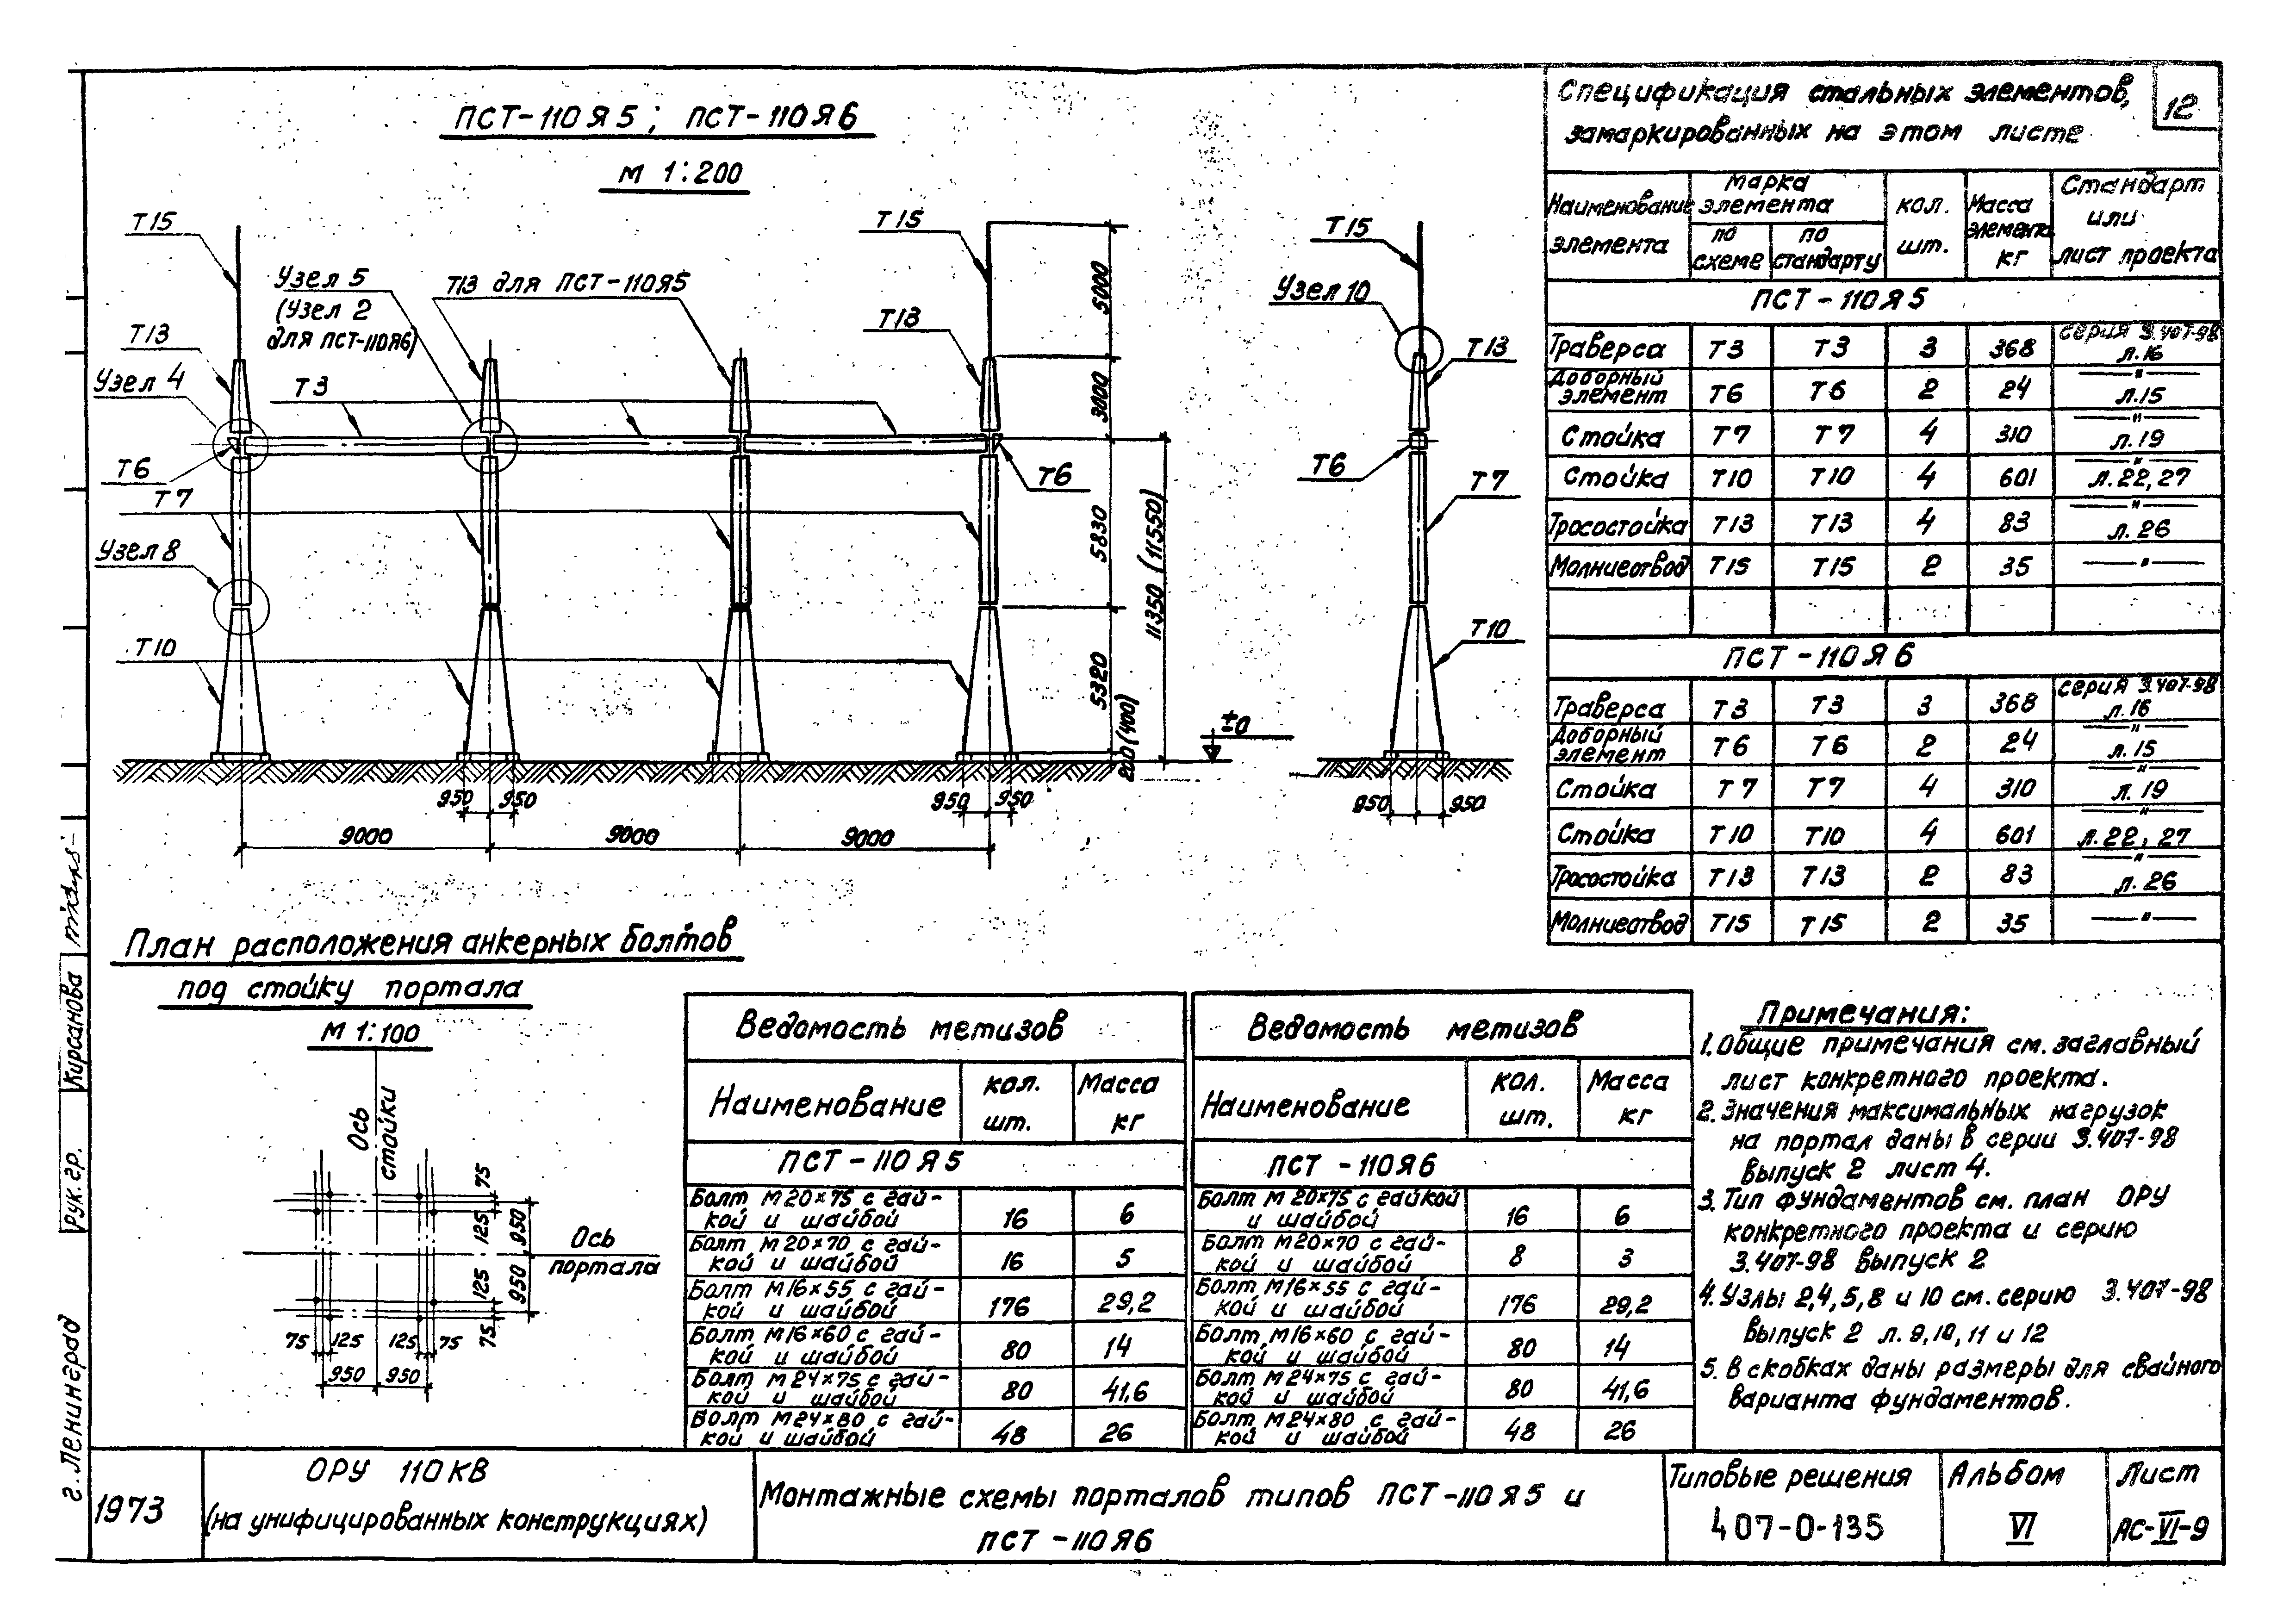 ПСТ-110Я5; ПСТ-110Я6
М 1:200
Т15
Т15
Т15
Узел 5
(Узел 2
для ПСТ-110Я6)
Т13 для ПСТ-110Я5
Т13
Т13
Узел 10
Т13
Узел 4
Т3
Т6
Т6
Т6
Т7
Т7
Узел 8
Т10
Т10
5000
3000
5830
5320
200 (400)
11350 (11550)
±0
950 950
950 950
950 950
9000 9000 9000
План расположения анкерных болтов
под стойку портала
М 1:100
Ось
стойки
Ось
портала
75
125
950
950
125
75
75 125 125 75
950 950
12
Спецификация стальных элементов,
замаркированных на этом листе
Наименование элемента | Марка элемента | кол. шт. | Масса элемента кг | Стандарт или лист проекта
по схеме | по стандарту
ПСТ-110Я5
Траверса Т3 Т3 3 368 серия 3.407-98 л.16
Доборный элемент Т6 Т6 2 24 —"— л.15
Стойка Т7 Т7 4 310 —"— л.19
Стойка Т10 Т10 4 601 —"— л.22,27
Тросостойка Т13 Т13 4 83 —"— л.26
Молниеотвод Т15 Т15 2 35 —"—
ПСТ-110Я6
Траверса Т3 Т3 3 368 серия 3.407-98 л.16
Доборный элемент Т6 Т6 2 24 —"— л.15
Стойка Т7 Т7 4 310 —"— л.19
Стойка Т10 Т10 4 601 —"— л.22,27
Тросостойка Т13 Т13 2 83 —"— л.26
Молниеотвод Т15 Т15 2 35 —"—
Ведомость метизов
Наименование кол. шт. Масса кг
ПСТ-110Я5
Болт М20×75 с гай-
кой и шайбой 16 6
Болт М20×70 с гай-
кой и шайбой 16 5
Болт М16×55 с гай-
кой и шайбой 176 29,2
Болт М16×60 с гай-
кой и шайбой 80 14
Болт М24×75 с гай-
кой и шайбой 80 41,6
Болт М24×80 с гай-
кой и шайбой 48 26
Ведомость метизов
Наименование кол. шт. Масса кг
ПСТ-110Я6
Болт М20×75 с гайкой
и шайбой 16 6
Болт М20×70 с гай-
кой и шайбой 8 3
Болт М16×55 с гай-
кой и шайбой 176 29,2
Болт М16×60 с гай-
кой и шайбой 80 14
Болт М24×75 с гай-
кой и шайбой 80 41,6
Болт М24×80 с гай-
кой и шайбой 48 26
Примечания:
1. Общие примечания см. заглавный
лист конкретного проекта.
2. Значения максимальных нагрузок
на портал даны в серии 3.407-98
выпуск 2 лист 4.
3. Тип фундаментов см. план ОРУ
конкретного проекта и серию
3.407-98 выпуск 2
4. Узлы 2,4,5,8 и 10 см. серию 3.407-98
выпуск 2 л. 9,10,11 и 12
5. В скобках даны размеры для свайного
варианта фундаментов.
Рук. гр. Кирсанова
г. Ленинград
1973
ОРУ 110КВ
(на унифицированных конструкциях)
Монтажные схемы порталов типов ПСТ-110Я5 и
ПСТ-110Я6
Типовые решения
407-0-135
Альбом
VI
Лист
АС-VI-9